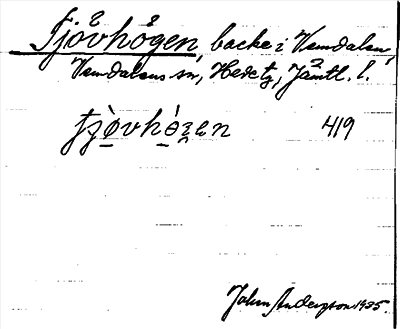 Tjåvhågen, backe i Vemdalen,
Vemdalens sn, Hede tg, Jämtl. l.
tjòvhò̀gen 419
John Anderzon 1935.